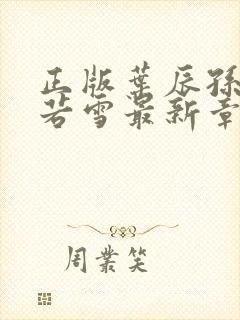 正版叶辰孙
若雪最新章
周業笑